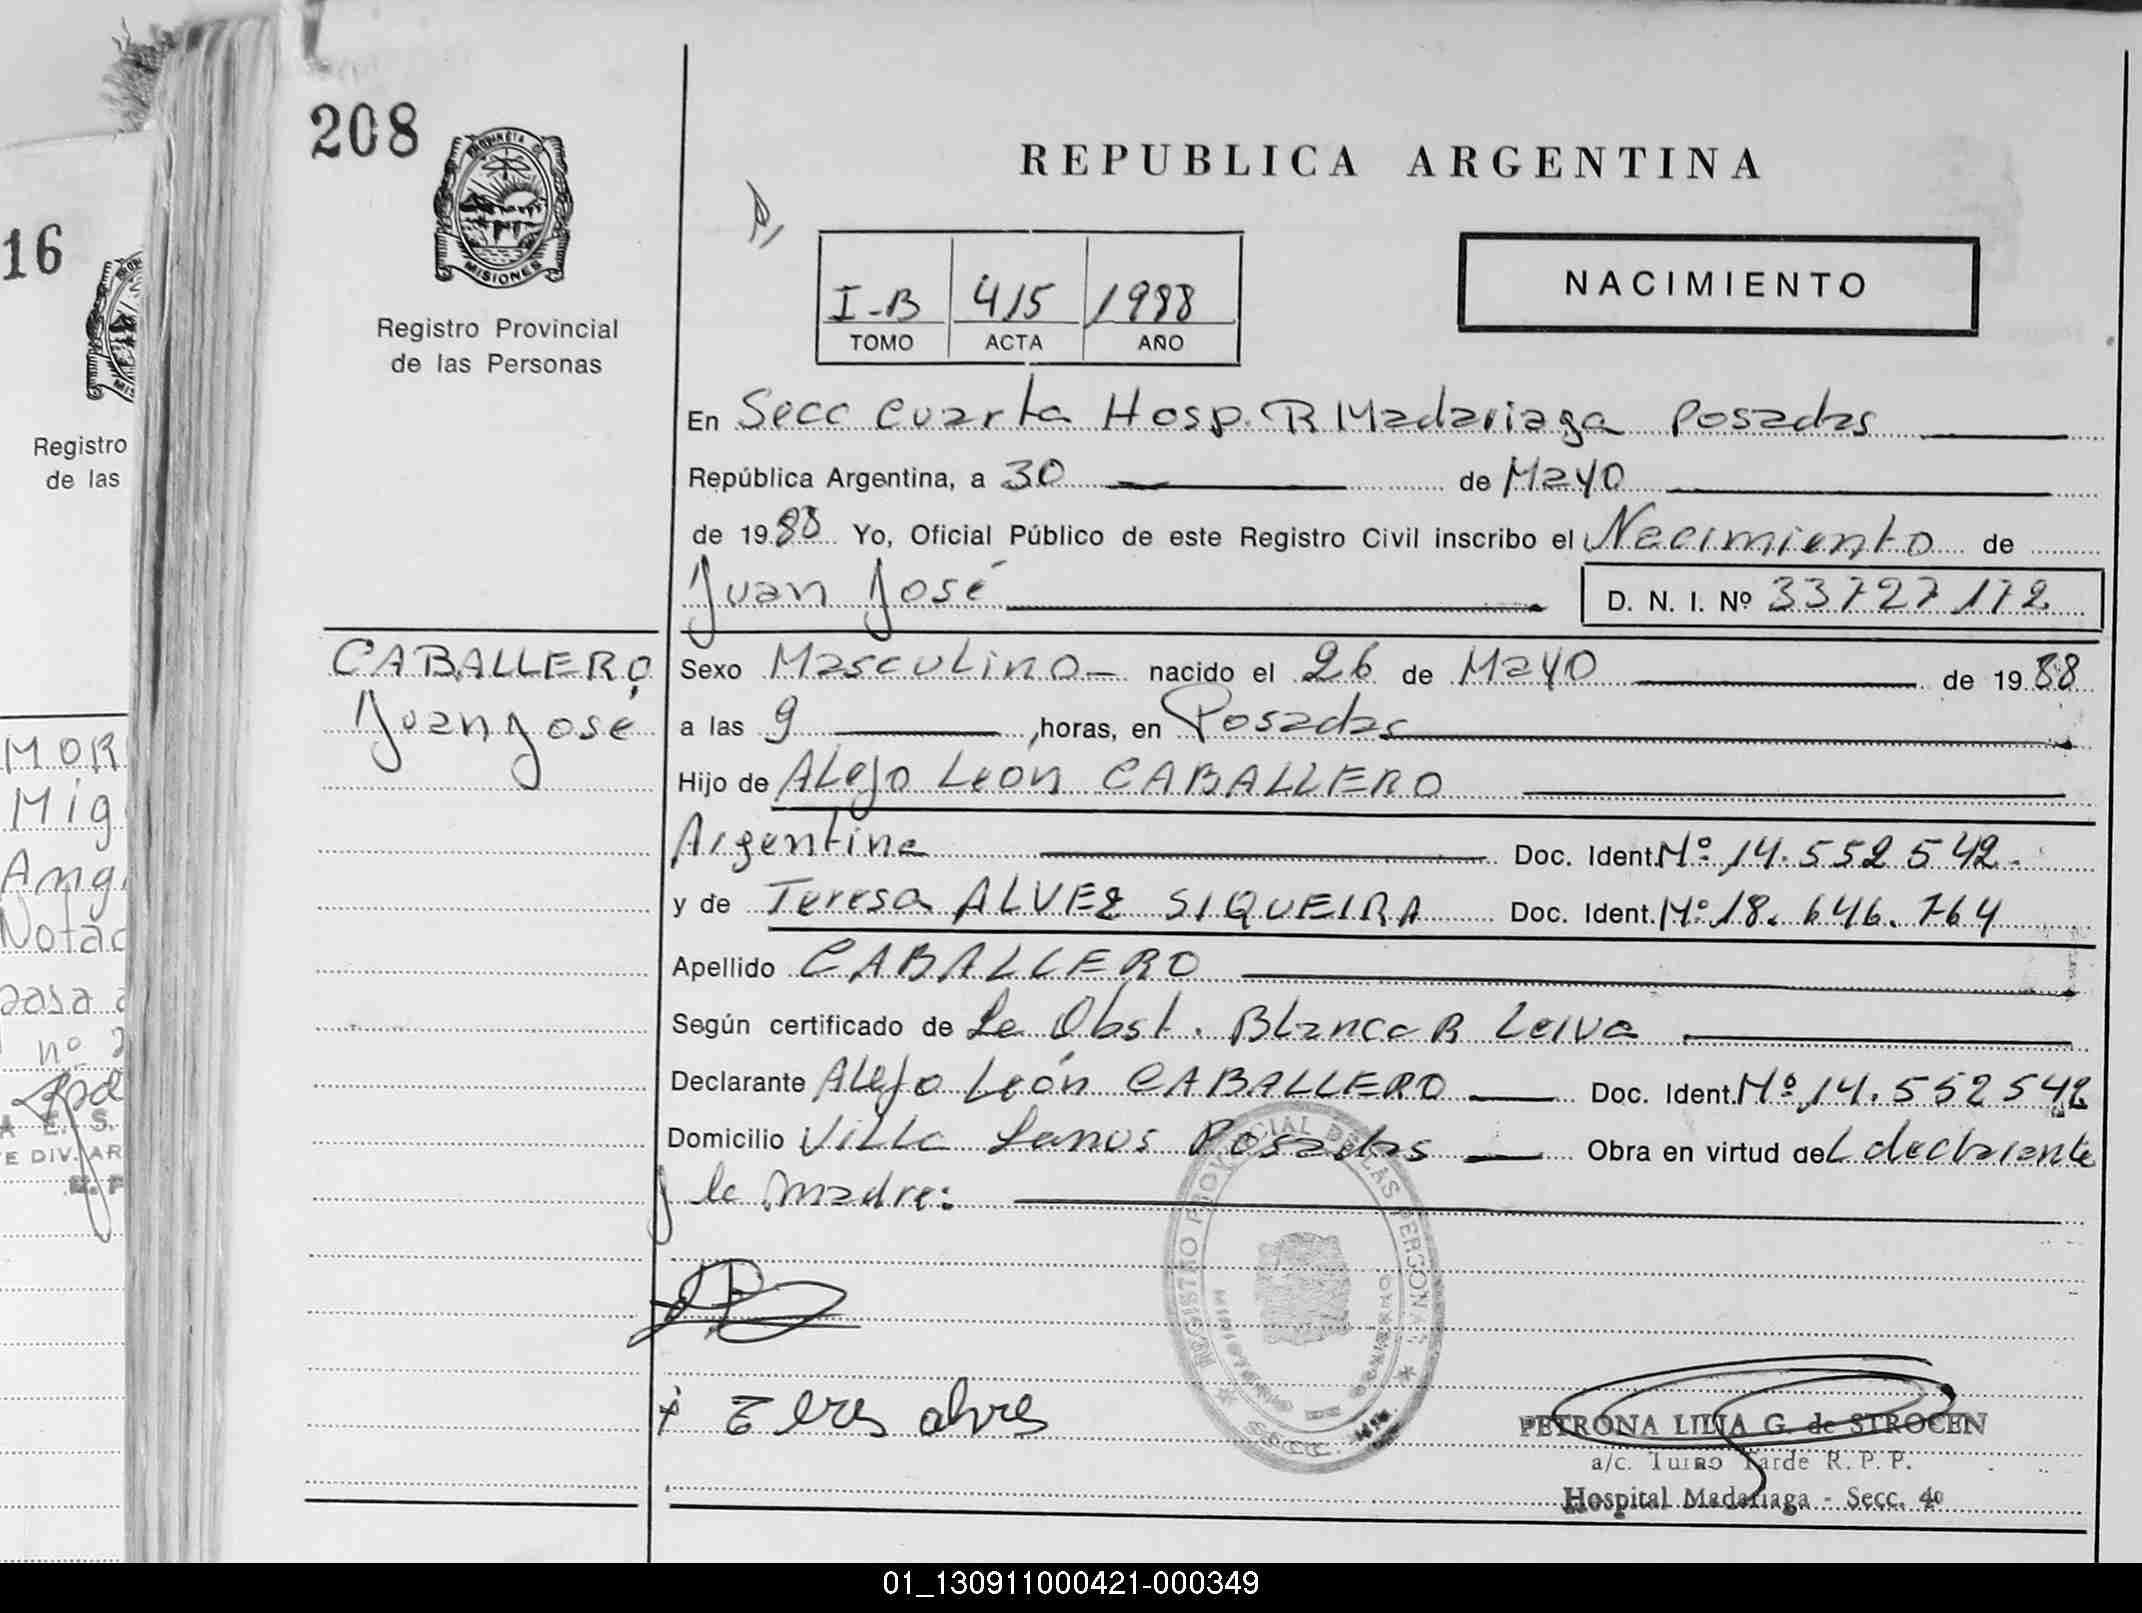 208
PROVINCIA D
MISIONES
Registro Provincial
de las Personas
REPUBLICA ARGENTINA
I-B 415 1988
TOMO ACTA AÑO
NACIMIENTO
En Secc Cuarta Hosp. R Madariaga Posadas
República Argentina, a 30 de Mayo
de 1988 Yo, Oficial Público de este Registro Civil inscribo el Nacimiento de
Juan José
D. N. I. Nº 33727172
CABALLERO
Juan José
Sexo Masculino nacido el 26 de Mayo de 1988
a las 9 horas, en Posadas
Hijo de Alejo León CABALLERO
Argentina Doc. Ident. Mº 14.552542
y de Teresa ALVEZ SIQUEIRA Doc. Ident. Mº 18.646.764
Apellido CABALLERO
Según certificado de La Obst. Blanca R Leiva
Declarante Alejo León CABALLERO Doc. Ident. Mº 14.552542
Domicilio Villa Lanus Posadas Obra en virtud del declarante
y la madre:
REGISTRO PROVINCIAL DE LAS PERSONAS
MINISTERIO GOBIERNO
SECC.
PETRONA LILIA G. de STROCEN
a/c. Turno Tarde R. P. P.
Hospital Madariaga - Secc. 4º
16
Registro
de las
MOR
Mig
Ang
Notac
nº 2
A E. S.
E DIV. AR
01_130911000421-000349